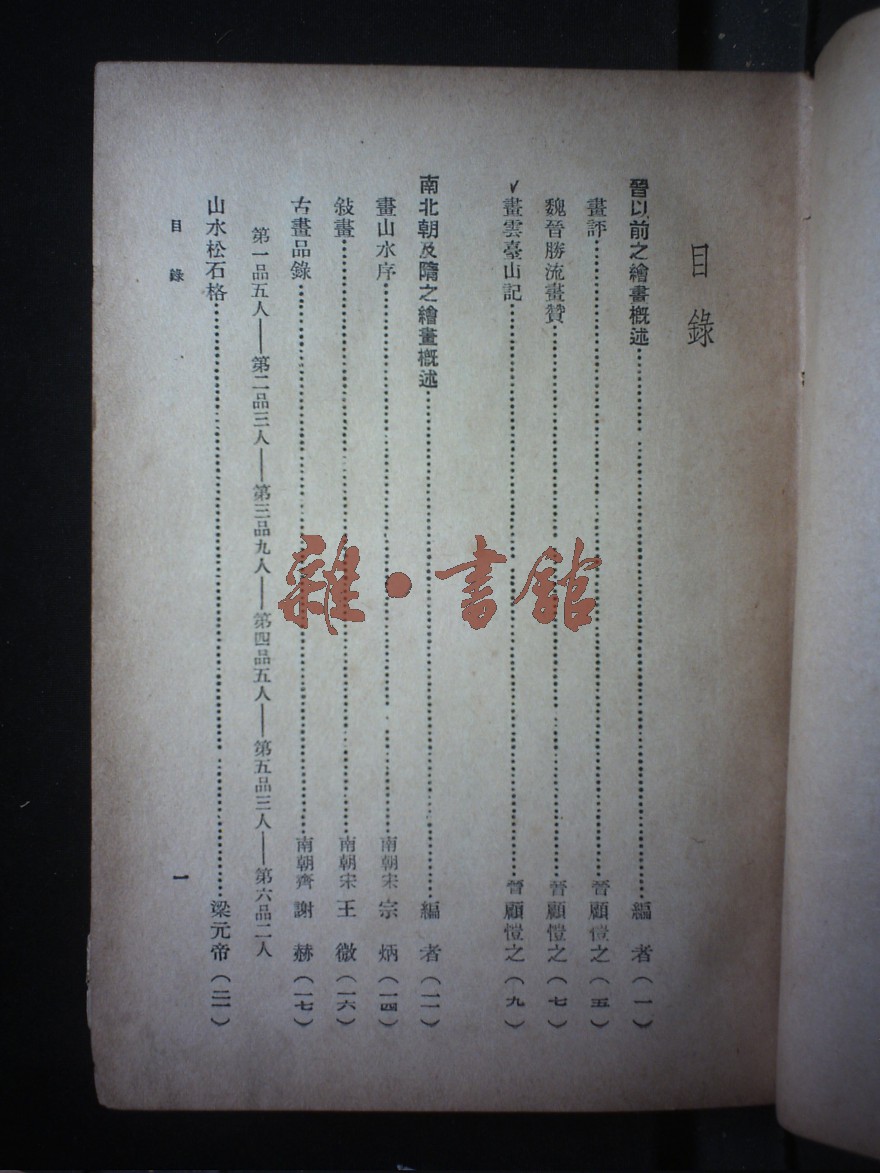 目錄
晉以前之繪畫概述……編者（一）
畫評……晉顧愷之（五）
魏晉勝流畫贊……晉顧愷之（七）
√畫雲臺山記……晉顧愷之（九）
南北朝及隋之繪畫概述……編者（一一）
畫山水序……南朝宋宗炳（一四）
敍畫……南朝宋王微（一六）
古畫品錄……南朝齊謝赫（一七）
第一品五人——第二品三人——第三品九人——第四品五人——第五品三人——第六品二人
山水松石格……梁元帝（二一）
目錄 一
雜·書館